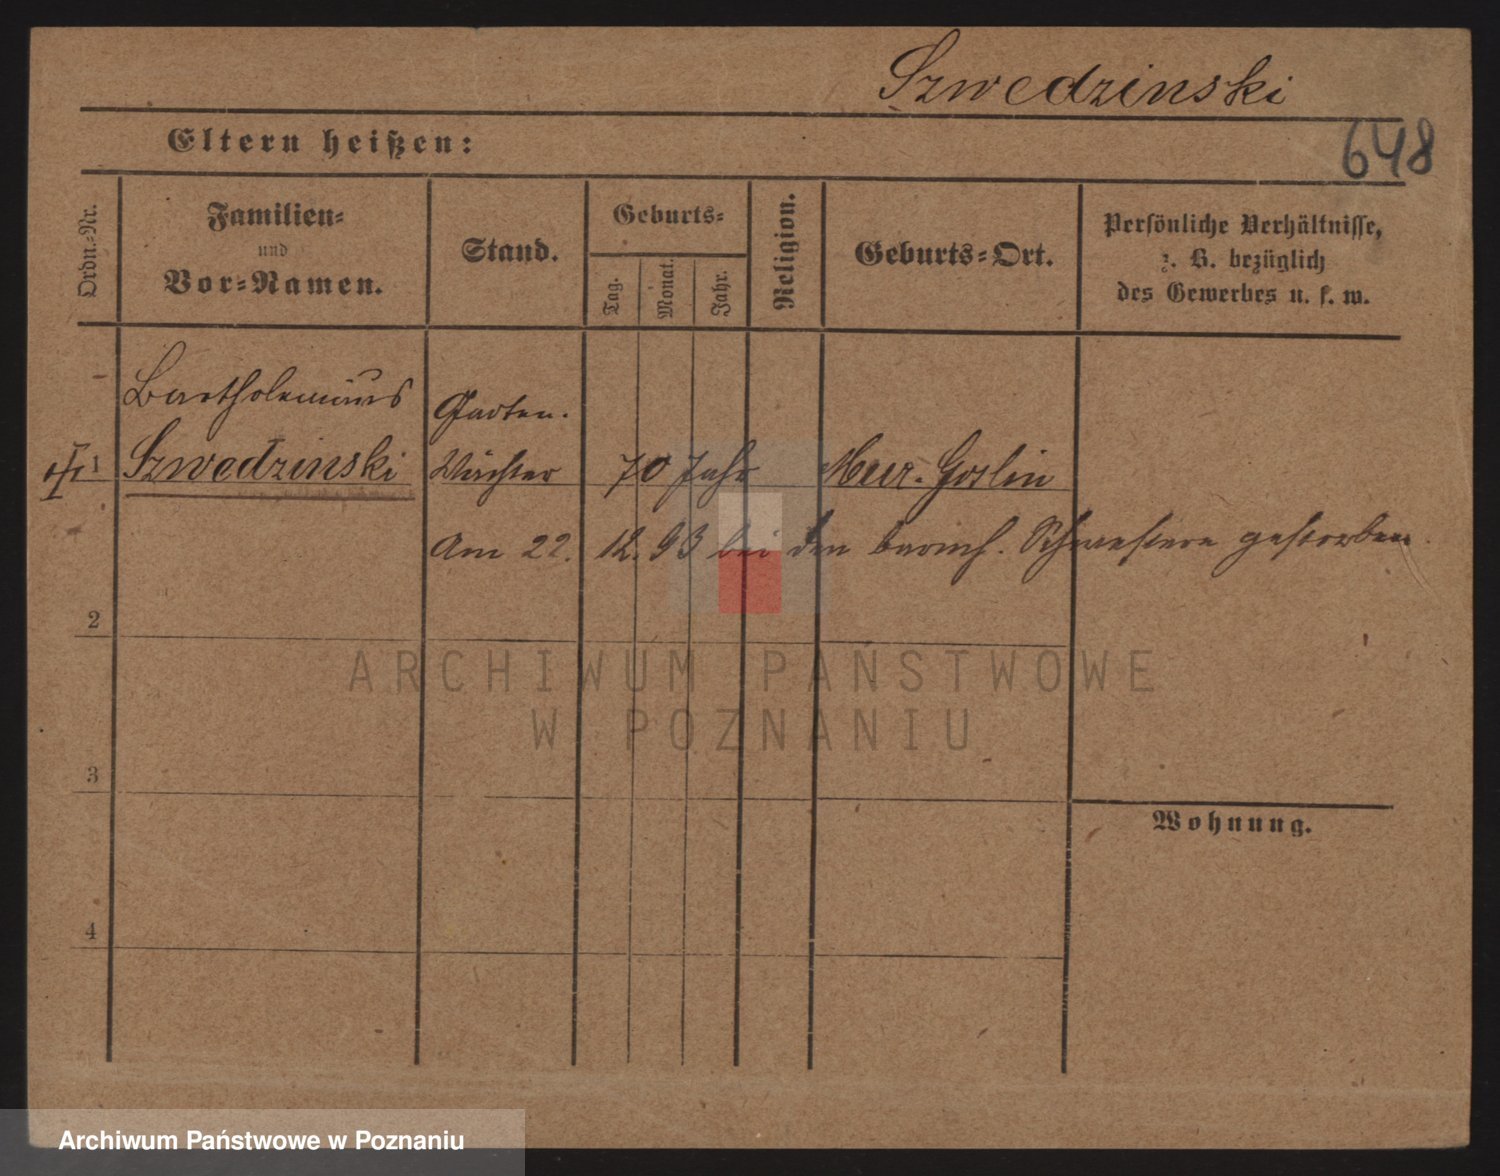 Szwedzinski
648
Eltern heißen:
Ordn.-Nr.
Familien-
und
Vor-Namen.
Stand.
Geburts-
Tag.
Monat.
Jahr.
Religion.
Geburts-Ort.
Persönliche Verhältnisse,
z. B. bezüglich
des Gewerbes u. s. w.
Bartholemäus
Garten.
1 Szwedzinski Wächter 70 Jahr Mur. Goslin
Am 22. 12. 93 bei den barmh. Schwestern gestorben.
2
ARCHIWUM PAŃSTWOWE
W POZNANIU
3
Wohnung.
4
Archiwum Państwowe w Poznaniu